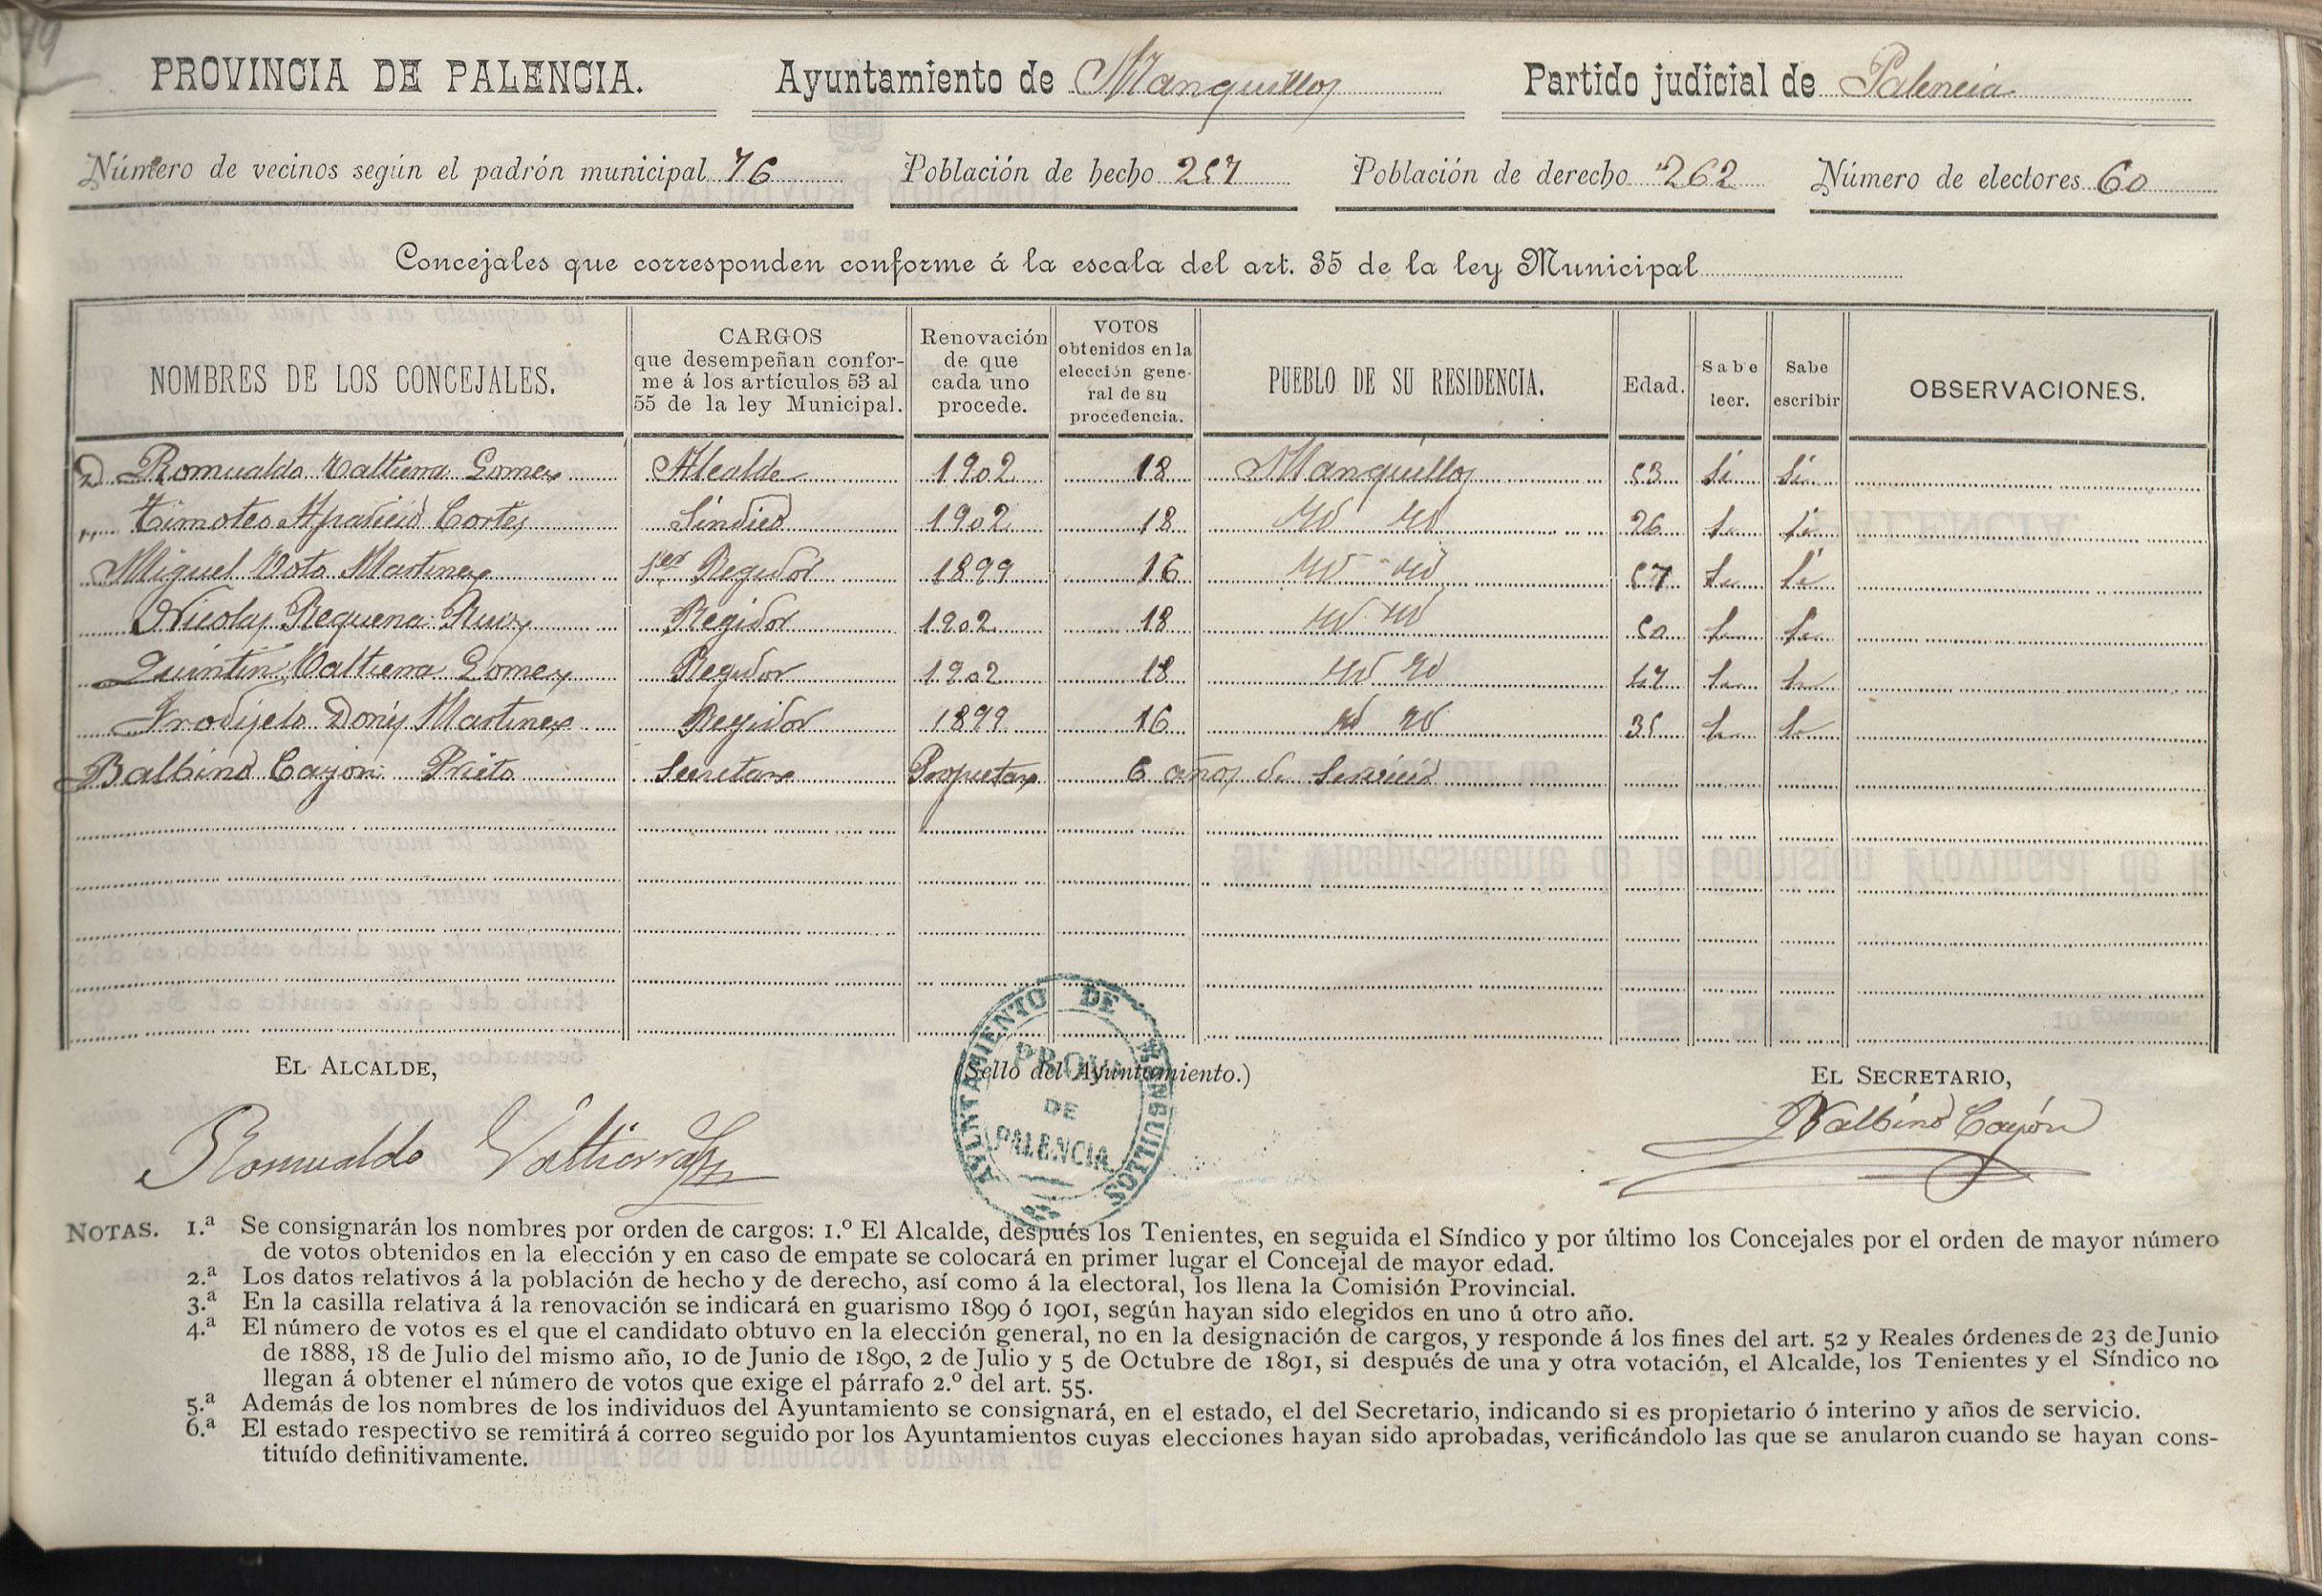 PROVINCIA DE PALENCIA. Ayuntamiento de Manquillos Partido judicial de Palencia
Número de vecinos según el padrón municipal 76 Población de hecho 257 Población de derecho 262 Número de electores 60
Concejales que corresponden conforme á la escala del art. 35 de la ley Municipal
NOMBRES DE LOS CONCEJALES. CARGOS que desempeñan conforme á los artículos 53 al 55 de la ley Municipal. Renovación de que cada uno procede. VOTOS obtenidos en la elección general de su procedencia. PUEBLO DE SU RESIDENCIA. Edad. Sabe leer. Sabe escribir OBSERVACIONES.
D Romualdo Valtierra Gomez Alcalde 1902 18 Manquillos 53 Si Si
" Timoteo Aparicio Cortes Síndico 1902 18 id id 26 Si Si
Miguel Voto Martinez 1er Regidor 1899 16 id id 57 Si Si
Nicolas Requena Ruiz Regidor 1902 18 id id 50 Si Si
Quintin Valtierra Gomez Regidor 1902 18 id id 47 Si Si
Martinez Regidor 1899 16 id id 35 Si Si
Balbino Cayón Prieto Secretario Propietario 6 años de Servicio
EL ALCALDE, (Sello del Ayuntamiento.) EL SECRETARIO,
AYUNTAMIENTO DE MANQUILLOS
PROVA
DE
PALENCIA
Romualdo Valtierra Balbino Cayón
NOTAS. 1.ª Se consignarán los nombres por orden de cargos: 1.º El Alcalde, después los Tenientes, en seguida el Síndico y por último los Concejales por el orden de mayor número
de votos obtenidos en la elección y en caso de empate se colocará en primer lugar el Concejal de mayor edad.
2.ª Los datos relativos á la población de hecho y de derecho, así como á la electoral, los llena la Comisión Provincial.
3.ª En la casilla relativa á la renovación se indicará en guarismo 1899 ó 1901, según hayan sido elegidos en uno ú otro año.
4.ª El número de votos es el que el candidato obtuvo en la elección general, no en la designación de cargos, y responde á los fines del art. 52 y Reales órdenes de 23 de Junio
de 1888, 18 de Julio del mismo año, 10 de Junio de 1890, 2 de Julio y 5 de Octubre de 1891, si después de una y otra votación, el Alcalde, los Tenientes y el Síndico no
llegan á obtener el número de votos que exige el párrafo 2.º del art. 55.
5.ª Además de los nombres de los individuos del Ayuntamiento se consignará, en el estado, el del Secretario, indicando si es propietario ó interino y años de servicio.
6.ª El estado respectivo se remitirá á correo seguido por los Ayuntamientos cuyas elecciones hayan sido aprobadas, verificándolo las que se anularon cuando se hayan cons-
tituído definitivamente.